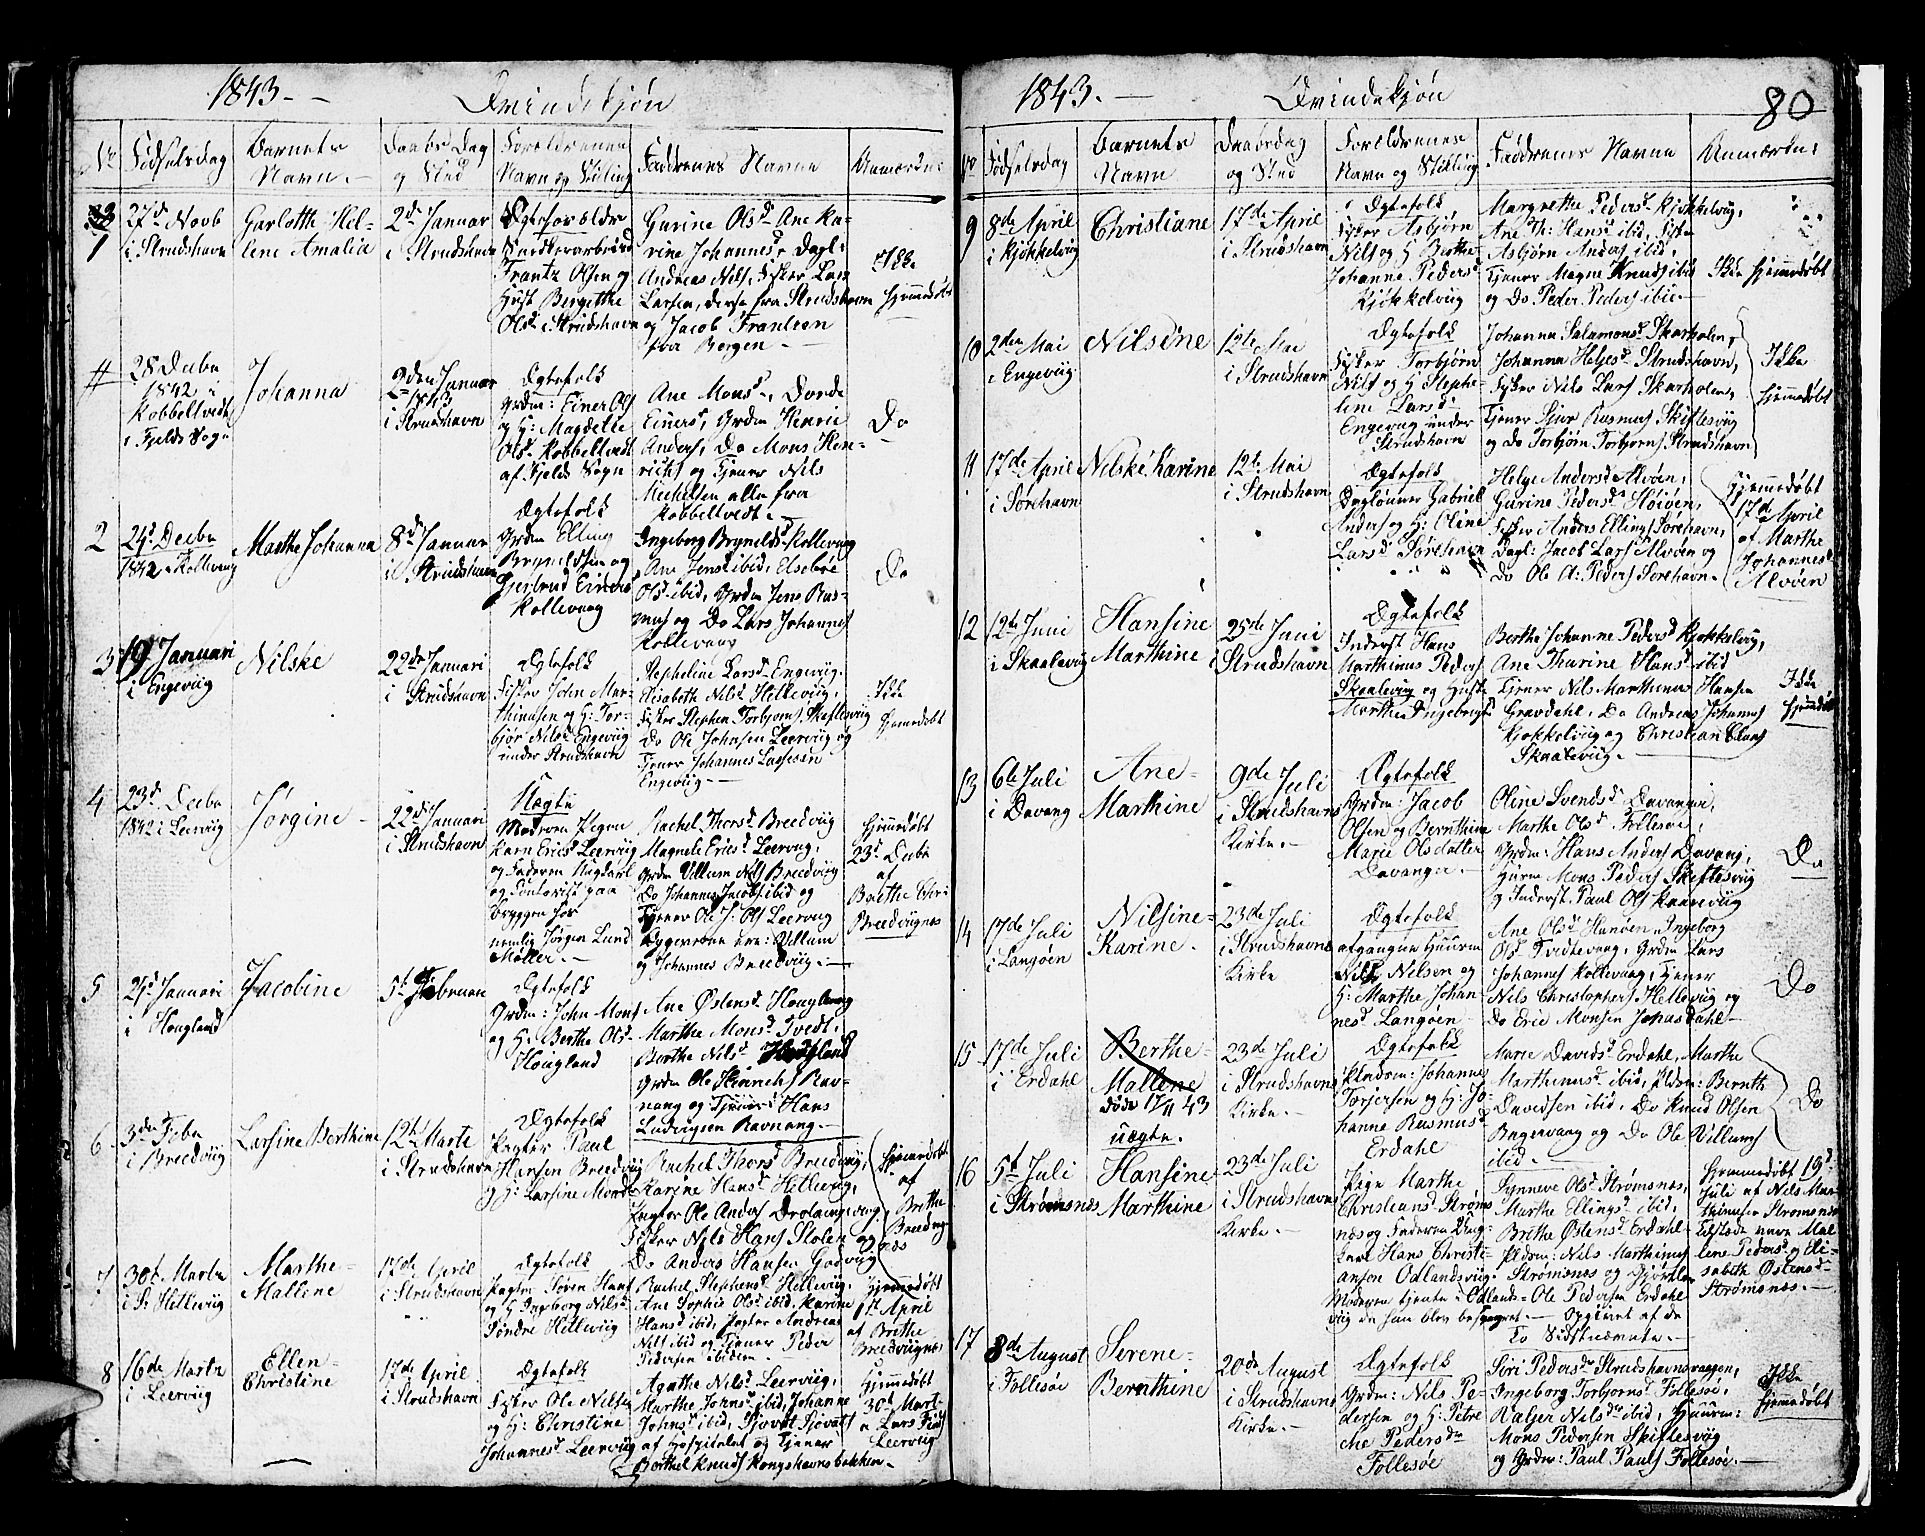 1843. — Qvindekjøn
No Fødselsdag Barnets Navn. — Daabs Dag og Sted Foreldrenes Navn og Stilling Faddrenes Navne Anmærkn:
1 27de Novb i Strudshavn
Garlotta Helene Amalia
2d Januar i Strudshavn
Ægteforældre
Frantz Olsen og
Hust Bergitthe
Olsd i Strudshavn
Gurine Olsd Ane Karine Johannesd, Dagl:
Andreas Nils, Fisker Lars
Larsen, disse fra Strudshavn
og Jacob Frantzen
fra Bergen —
Ikke
hjemmedøbt
# 28 Decbr
1842 i
Kobbeltvedt
i Fjelds Sogn
Johanna
2den Januar
1843
i Strudshavn
Ægtefolk
Grdm: Einer Ols
og H: Magdelte
Olsd Kobbeltvedt
af Fjelds Sogn
Ane Monsd, Dorde
Einersd, Grdm Henric
Anders, Do Mons Henrichs og Tjener Nils
Michelsen alle fra
Kobbeltvedt. —
Do
2 24d Decbr
1842 i Kollevaag
Marthe Johanna
8d Januar
i Strudshavn
Ægtefolk
Grdm Elling
Brynildsen og
Gjertrud Einersd
Kollevaag
Ingeborg Brynildsd Kollevaag
Ane Jensd ibid, Elsebeé
Olsd ibid, Grdm Jens Rasmus og Do Lars Johannes
Kollevaag
Do
3 19 Januari
i Engeviig
Nilske
22de Januari
i Strudshavn
Ægtefolk
Fisker John Marthinusen og H: Torbjør Nilsd Engeviig
under Strudshavn
Stepheline Larsd Engeviig,
Elisabeth Nilsd Hilleviig,
Fisker Stephen Torbjørns Skifleviig
Do Ole Johnsen Leerviig og
Tjener Johannes Lassesen
Engeviig —
Ikke
hjemmedøbt
4 23d Decbr
1842 i Leerviig
Jørgine —
22d Januari
i Strudshavn
Uægte
Moderen Pigen
Karn Ericsd Leerviig
og Faderen Ungkarl
og Contorist paa
Bryggen hos
nemlig Jørgen Lund
Möller. —
Rachel Thorsd Breedviig
Magnele Ericsd Leerviig,
Grdm Villum Nils Breedviig
Do Johannes Jacobs ibid og
Tjener Ole J: Ols Leerviig
Opgiverne ere: Villum
og Johannes Breedviig. —
Hjemmedøbt
23d Decbr
af
Brithe
Breedviignes
5 25d Januari
i Hougland
Jacobine
5t Februar
Ægtefolk
Grdm: John Mons
og H: Berthe Olsd
Hougland
Ane Østensd Hougland
Marthe Monsd Tvedt,
Berthe Nilsd Hougland
Grdm Ole Henrichs Ravnang og Tjener Hans
Ludvigsen Ravnang. —
6 3de Febr
i Breedviig
Larsine Berthine
12te Marti
i Strudshavn
Ægtefolk
Pagter Paul
Hansen Breedviig
og H: Larsine Monsd
Rachel Thorsd Breedviig,
Karine Hansd Hilleviig,
Pagter Ole Anders
Fisker Nils Hans Stolen og
Do Anders Hansen Godviig
Hjemmedøbt
af
Brithe
Breedvignes
7 30t Martii
i S: Hilleviig
Marthe Mallene
17de April
i Strudshavn
Ægtefolk
Pagter Søren Hans
og H Ingeborg Nilsd
Søndre Hilleviig
Rachel Stephensd Hilleviig,
Ane Sophie Olsd ibid, Karine
Hansd ibid, Pagter Andreas
Nils ibid og Tjener Peder
Pedersen ibidem. —
Hjemmedøbt
1st April
af Brithe
Breedviignes
8 16de Martii
i Leerviig
Ellen Christine
17de April
i Strudshavn
Ægtefolk
Fisker Ole Nilsen
og H: Christine
Johannesd Leerviig
Agathe Nilsd Leerviig,
Marthe Johnsd ibid, Johanne
Johnsd ibid, Sjovat Sjovats
af Hospitalet og Tjener
Berthel Knuds Kongshavnsbakken. —
Hjemmedøbt
30t Marti
a Lars
Leerviig
1843. — Qvindekjøn 80
No Fødselsdag Barnets Navn Daabsdag og Sted Forældrenes Navn og Stilling Faddrenes Navne Anmærkn:
9 8de April
i Kjøkkelviig
Christiane
17de April
i Strudshavn
Ægtefolk
Fisker Asbjørn
Nils og H Berthe
Johanne Pedersd
Kjøkkelviig
Margrethe Pedersd Kjøkkelviig,
Ane Th: Hansd ibid, Fisker
Asbjørn Anders ibid,
Tjener Magne Knuds ibid
og Do Peder Peders ibid —
Ikke hjemmedøbt
10 2den Mai
i Engeviig
Nilsine
12te Mai
i Strudshavn
Ægtefolk
Fisker Torbjørn
Nils og H Stepheline Larsd
Engevig under
Strudshavn
Johanna Salamonsd Skarholm,
Johanna Helgesd Strudshavn,
Fisker Nils Lars Skarholm,
Tjener Siur Rasmus Skiftesviig
og Do Torbjørn Torbjorns Strudshavn
Ikke
hjemmedøbt
11 17de April
i Sørehavn
Nilské Karine
12te Mai
i Strudshavn
Ægtefolk
Daglønner Gabriel
Anders og H: Oline
Larsd Sørehavn
Helge Andersd Alvøen,
Gurine Pedersd Høiøen,
Fisker Anders Ellings Sørehavn,
Dagl: Jacob Lars Alvøen og
Do Ole A: Peders Sørehavn. —
Hjemmedøbt
17de April
af Marthe
Johannesd
Alvøen
12 12te Juni
i Skaaleviig
Hansine Marthine
25de Juni
i Strudshavn
Ægtefolk
Inderst Hans
Marthinus Peders
Skaalevig og Hustr
Marthe Ingebrigtsd
Berthe Johanne Pedersd Kjøkkelviig,
Ane Thurine Hansd ibid
Tjener Nils Marthinus Hansen
Gravdahl, Do Andreas Johannes
Kjøkkelviig og Christian Clens
Skaaleviig. —
Ikke
hjemmedøbt
13 6te Juli
i Davang
Ane Marthine
9de Juli
i Strudshavns
Kirke. —
Ægtefolk
Grdm: Jacob
Olsen og Bernthine
Marie Olsdatter
Davanger —
Oline Svendsd Davanger,
Marthe Olsd Follesøe,
Grdm: Hans Anders Davang,
Huusm Mons Peders Skiftesviig
og Inderst Paul Ols Skaaleviig
Do
14 17de Juli
i Langøen
Nilsine Karine.
23de Juli
i Strudshavns
Kirke
Ægtefolk
afgangne Huusm
Nils Nilsen og
H: Marthe Johannesd Langøen —
Ane Olsd Hanøen, Ingeborg
Olsd Tvedtevaag, Grdm Lars
Johannes Kollevaag, Tjener
Nils Christophers Hilleviig og
Do Eric Monsen Jonasdahl —
Do
15 17de Juli
i Erdahl
Berthe Mallene
døde 17/11 43
23de Juli
i Strudshavns
Kirke. —
Ægtefolk
Pldsm: Johannes
Torjersen og H: Johanne Rasmusd
Erdahl
Marie Davidsd Erdahl, Marthe
Marthinusd ibid, Pldsm: Bernth
Davidsen ibid, Do Knud Olsen
Bagervaag og Do Ole Villums
ibid. —
Do
16 5t Juli
i Strømsnes
uægte.
Hansine Marthine
23de Juli
i Strudshavns
Kirke. —
Pige Marthe
Christiansd Strømsnes og Faderen Ungkarl Hans Christiansen Odlandsviig.
Moderen tjente i Odlandsviig da hun blev besvangret. —
Synneve Olsd Strømsnes,
Marthe Ellingsd ibid,
Brithe Østensd Erdahl
Pldsm: Nils Marthinus
Strømsnes og
Ole Pedersen Erdahl
Opgivet af de
To Sidstnævnte. —
Hjemmedøbt 19d
Juli af Nils Marthinusen Strømsnes
Tilstede vare Malene Pedersd og Elisabeth Østensd
Strømsnes. —
17 8de August
i Follesøe
Serene Bernthine
20de August
i Strudshavns
Kirke. —
Ægtefolk
Grdm: Nils Pedersen og H: Petreche Pedersdr
Follesøe
Siri Pedersdr Strudshavnsvaagen,
Ingeborg Torbjørnsd Follesøe,
Nilsdr ibid, Huusm:
Mons Pedersen Skiftesviig
og Grdm: Paul Pauls Follesøe. —
Ikke
hjemmedøbt